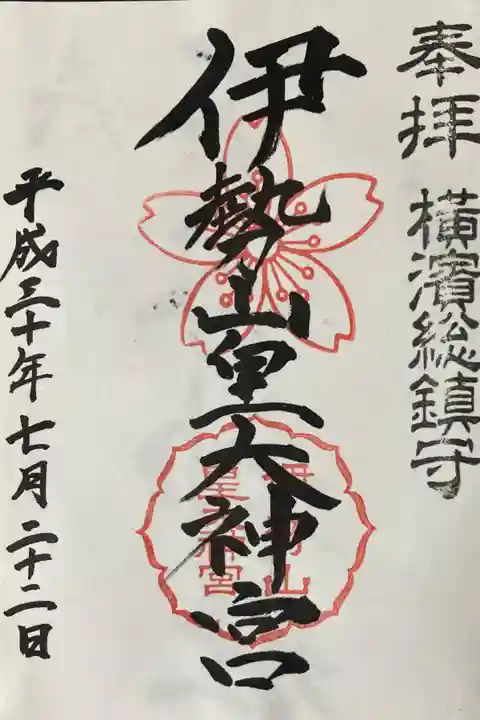 奉拝 横濱総鎮守
伊勢山皇大神宮
伊勢山
皇大神宮
平成三十年七月二十二日